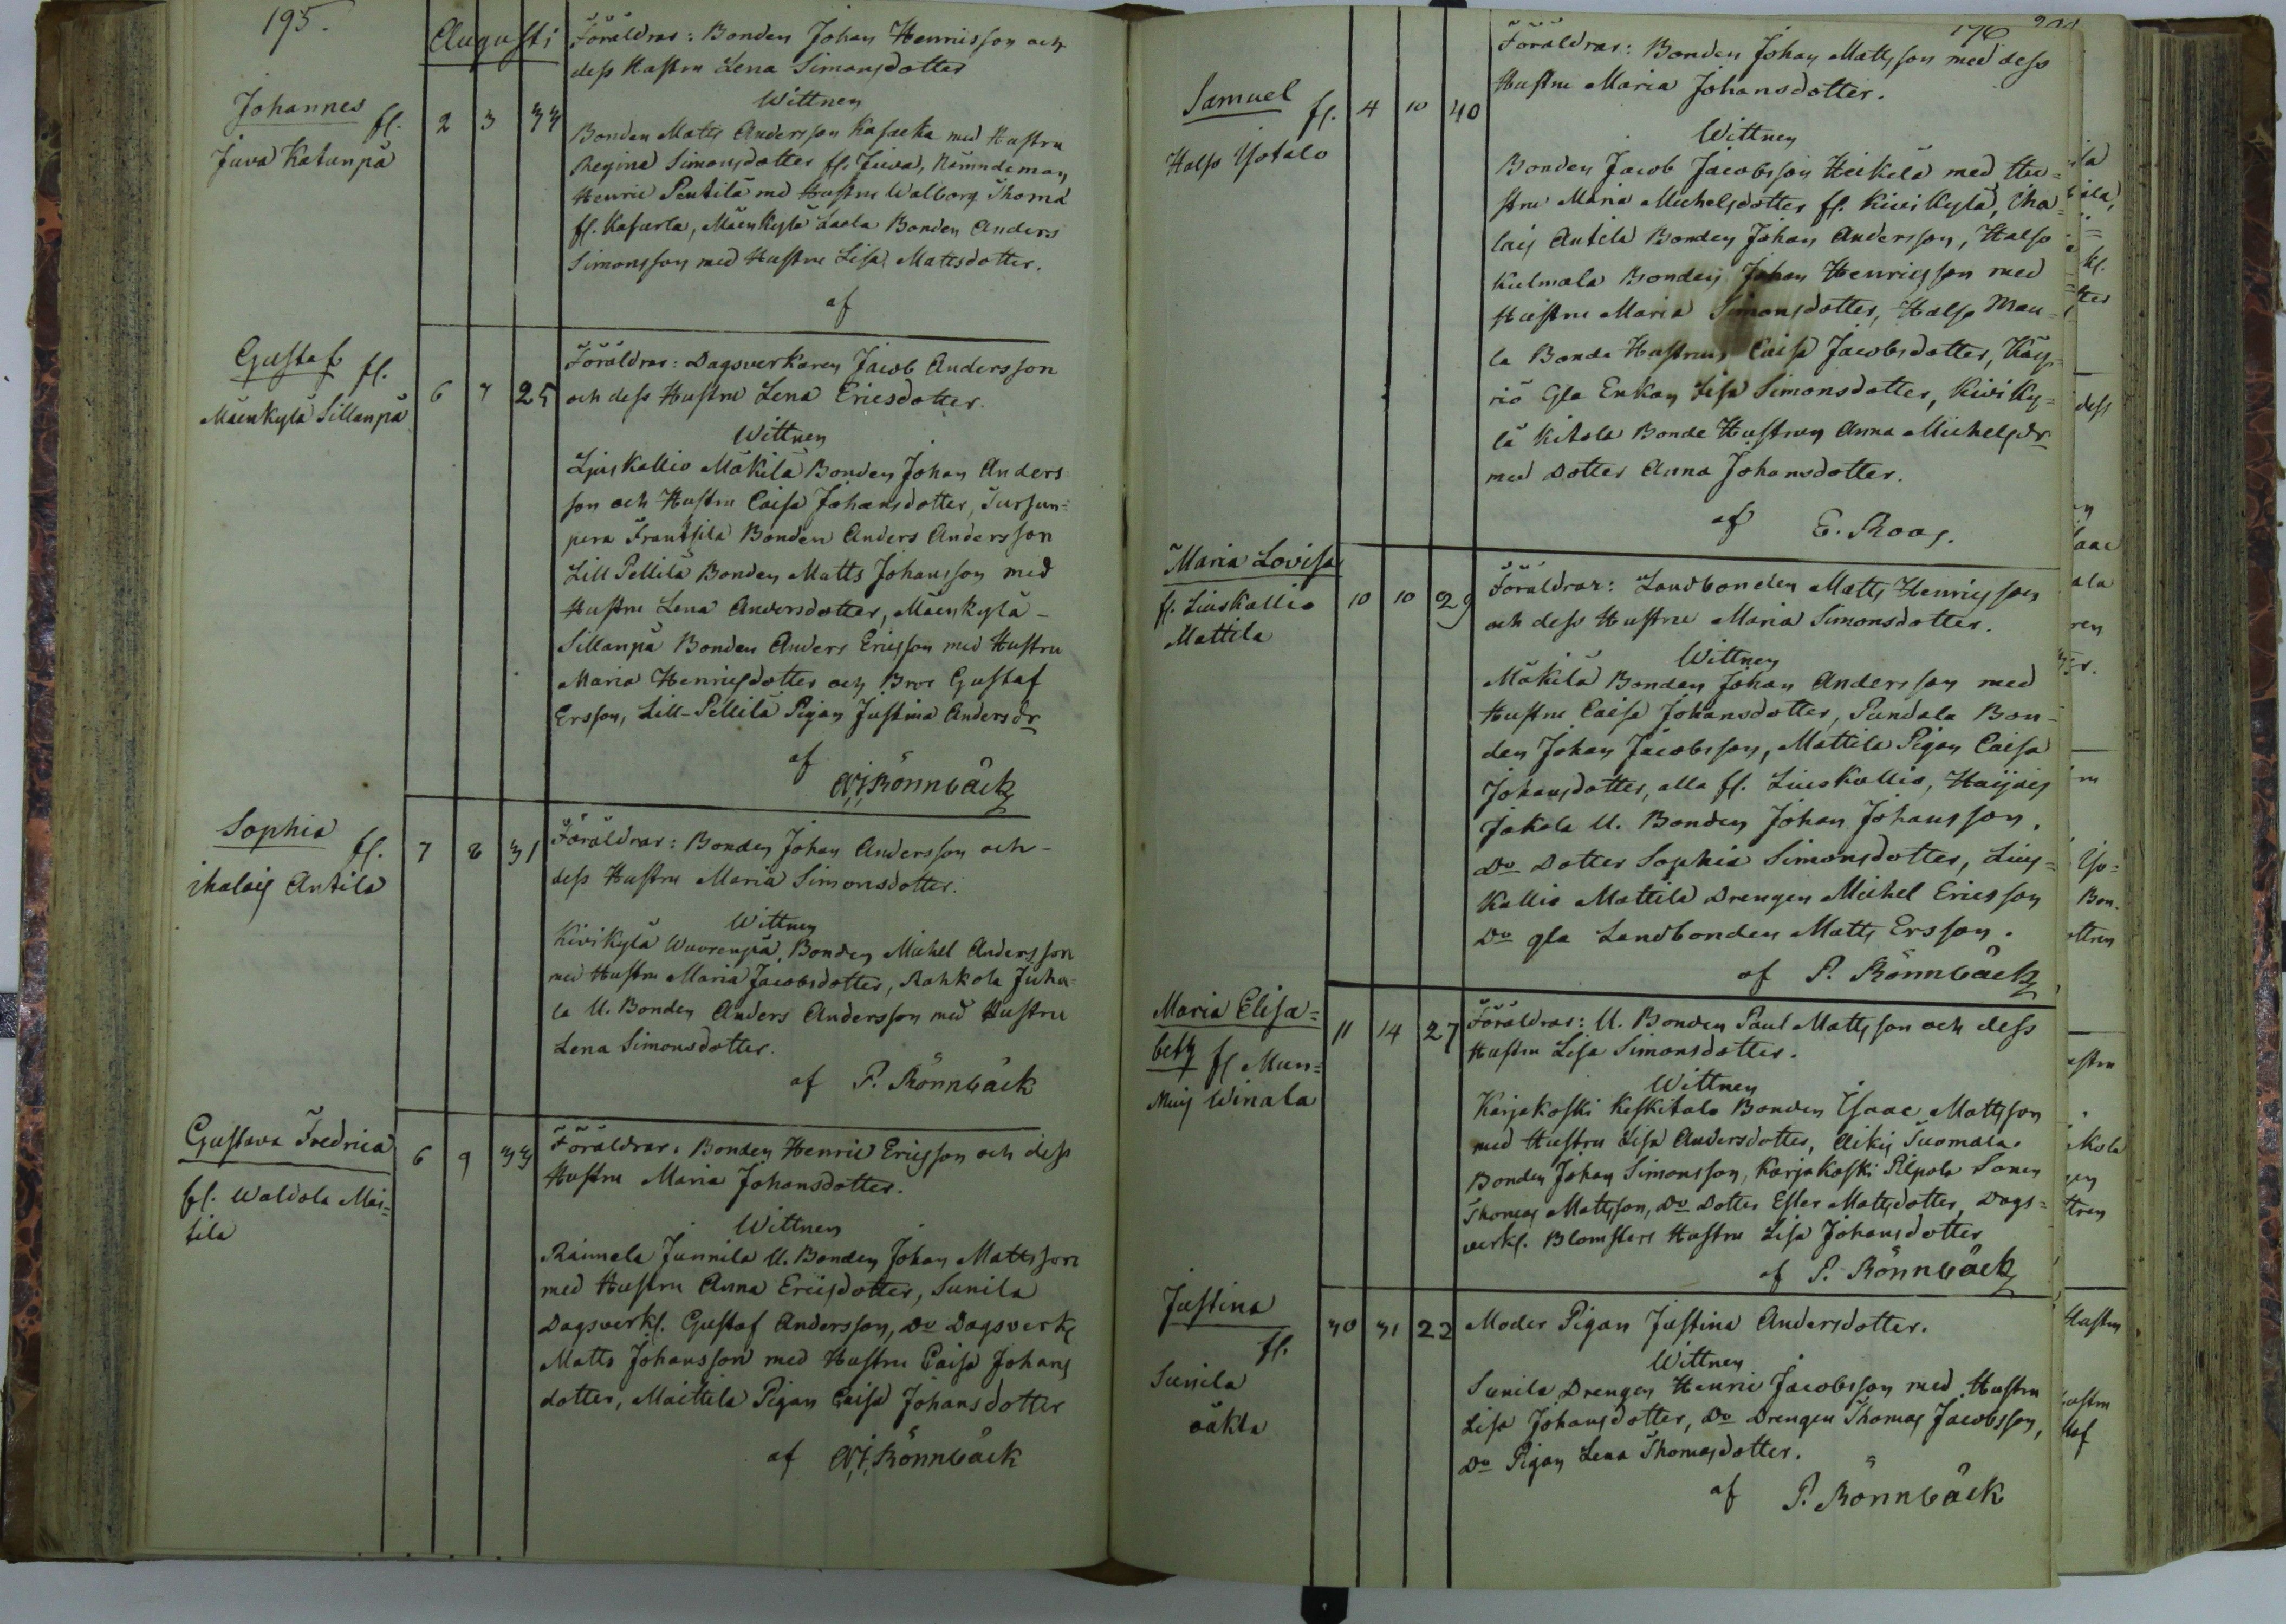 195.
Augusti
Johannes fl.
Juva Katanpä
2 3 33
Föräldrar: Bonden Johan Henricsson och
dess Hustru Lena Simonsdotter
Wittnen
Bonden Matts Andersson Kafaela med Hustru
Regina Simonsdotter fl. Juva, Nämndeman
Henric Pentilä med Hustru Walborg Thoma
fl. Kafaerla, Mäenkylä Laela Bonden Anders
Simonsson med Hustru Lisa Mattsdotter.
af
Gustaf fl.
Mäenkylä Sillanpä
6 7 25
Föräldrar: Dagsverkaren Jacob Andersson
och dess Hustru Lena Ericsdotter.
Wittnen
Ljuskallio Mäkilä Bonden Johan Anders
son och Hustru Caisa Johansdotter, Tursun=
pera Frantsila Bonden Anders Andersson
Lill Pellilä Bonden Matts Johansson med
Hustru Lena Andersdotter, Mäenkylä -
Sillanpä Bonden Anders Ericsson med Hustru
Maria Henricsdotter och Bror Gustaf
Ersson, Lill-Pellilä Pigan Justina Andersdr
af
Rönnbäck
Sophia fl.
ihalais Antila
7 8 31
Föräldrar: Bonden Johan Andersson och -
dess Hustru Maria Simonsdotter.
Wittnen
Kivikylä Wuorenpä, Bonden Michel Andersson
med Hustru Maria Jacobsdotter, Rahkola Juha=
la U. Bonden Anders Andersson med Hustru
Lena Simonsdotter.
af P. Rönnbäck
Gustava Fredrica
fl. Waldola Mai=
tila
6 9 33
Föräldrar: Bonden Henric Ericsson och dess
Hustru Maria Johansdotter.
Wittnen
Raumela Junnila U. Bonden Johan Mattsson
med Hustru Anna Ericsdotter, Sunila
Dagsverks. Gustaf Andersson, Do Dagsverks
Matts Johansson med Hustru Caisa Johans
dotter, Maittila Pigan Caisa Johansdotter
af Rönnbäck
196
Samuel fl.
Halso Yotalo
4 10 40
Föräldrar: Bonden Johan Mattsson med dess
Hustru Maria Johansdotter.
Wittnen
Bonden Jacob Jacobsson Heikelä med Hu=
stru Maria Michelsdotter fl. Kivikylä, iha=
lais Antila Bonden Johan Andersson, Halso
Kulmala Bonden Johan Henricsson med
Hustru Maria Simonsdotter, Halso Mau=
la Bonde Hustrun Caisa Jacobsdotter, Käy=
riö Gla Enkan Lisa Simonsdotter, Kiviky=
lä Kitola Bonde Hustrun Anna Michelsdr
med Dotter Anna Johansdotter.
af E. Roos.
Maria Lovisa
fl. Liuskallio
Mattila
10 10 29
Föräldrar: Landbonden Matts Henricsson
och dess Hustru Maria Simonsdotter.
Wittnen
Mäkilä Bonden Johan Andersson med
Hustru Caisa Johansdotter, Pundala Bon-
den Johan Jacobsson, Mattila Pigan Caisa
Johansdotter, alla fl. Liuskallio, Haijais
Jakola U. Bonden Johan Johansson,
Do Dotter Sophia Simonsdotter, Lius=
kallio Mattila Drengen Michel Ericsson
Do gla Landbonden Matts Ersson.
af P. Rönnbäck
Maria Elisa=
beth fl Mun=
Winala
11 14 27
Föräldrar: U. Bonden Paul Mattsson och dess
Hustru Lisa Simonsdotter.
Wittnen
Karjakoski Keskitalo Bonden Isaac Mattsson
med Hustru Lisa Andersdotter, Aikis Tuomala
Bonden Johan Simonsson, Karjakoski Pilpola Sonen
Thomas Mattsson, Do Dotter Ester Mattsdotter, Dags=
verks. Blomsters Hustru Lisa Johansdotter
af P. Rönnbäck
Justina
fl.
Sunila
öäkta
30 31 22
Moder Pigan Justina Andersdotter.
Wittnen
Sunila Drengen Henric Jacobsson med Hustru
Lisa Johansdotter, Do Drengen Thomas Jacobsson,
Do Pigan Lena Thomasdotter.
af P. Rönnbäck